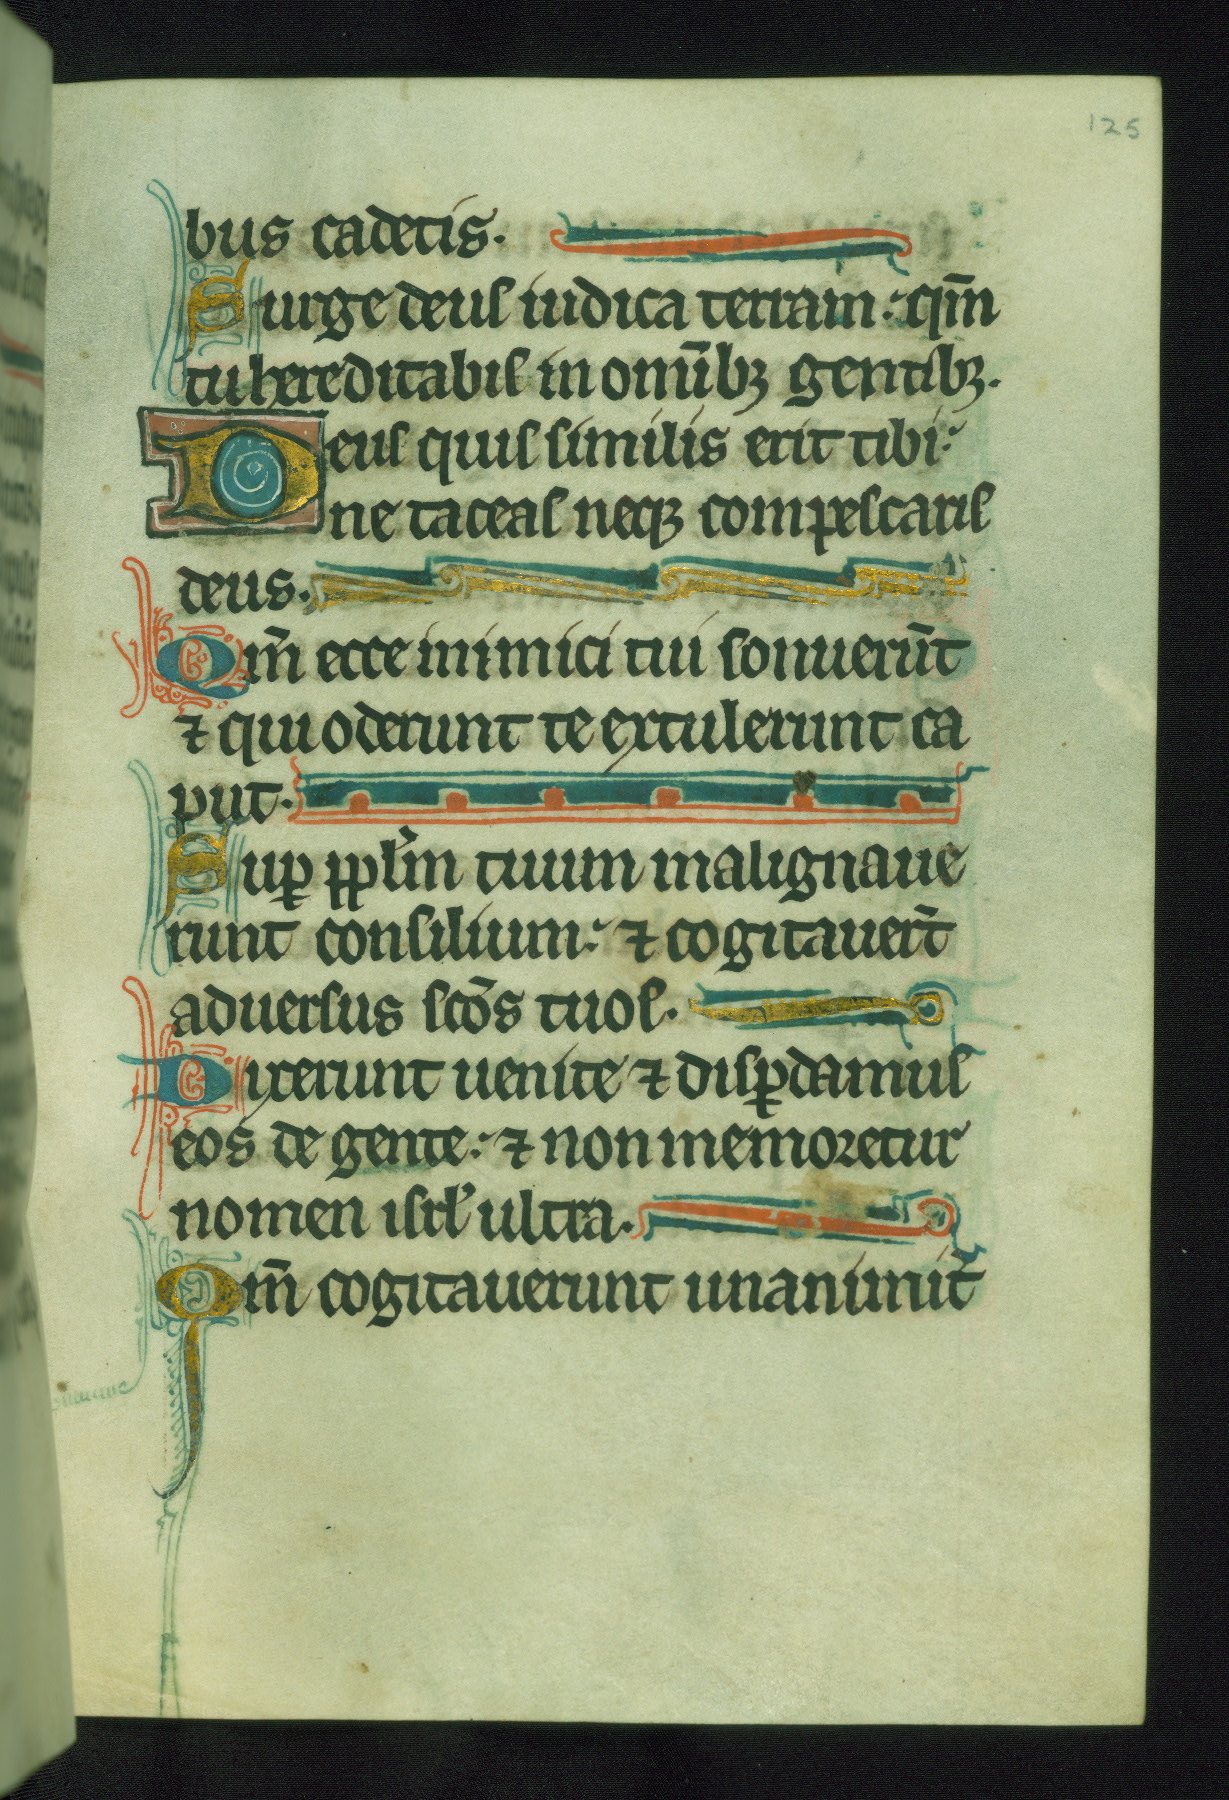 125
bus cadetis.
Surge deus iudica terram: qm̄
tu hereditabis in omīb; gentib;.
Deus quis similis erit tibi:
ne taceas neq; compescaris
deus.
Qm̄ ecce inimici tui sonuerūt
⁊ qui oderunt te extulerunt ca
put.
Suꝑ pplm̄ tuum malignaue
runt consilium: ⁊ cogitauer̄t
aduersus sc̄os tuos.
Dixerunt uenite ⁊ disꝑdamus
eos de gente: ⁊ non memoretur
nomen isrl' ultra.
Qm̄ cogitauerunt unanimit̄